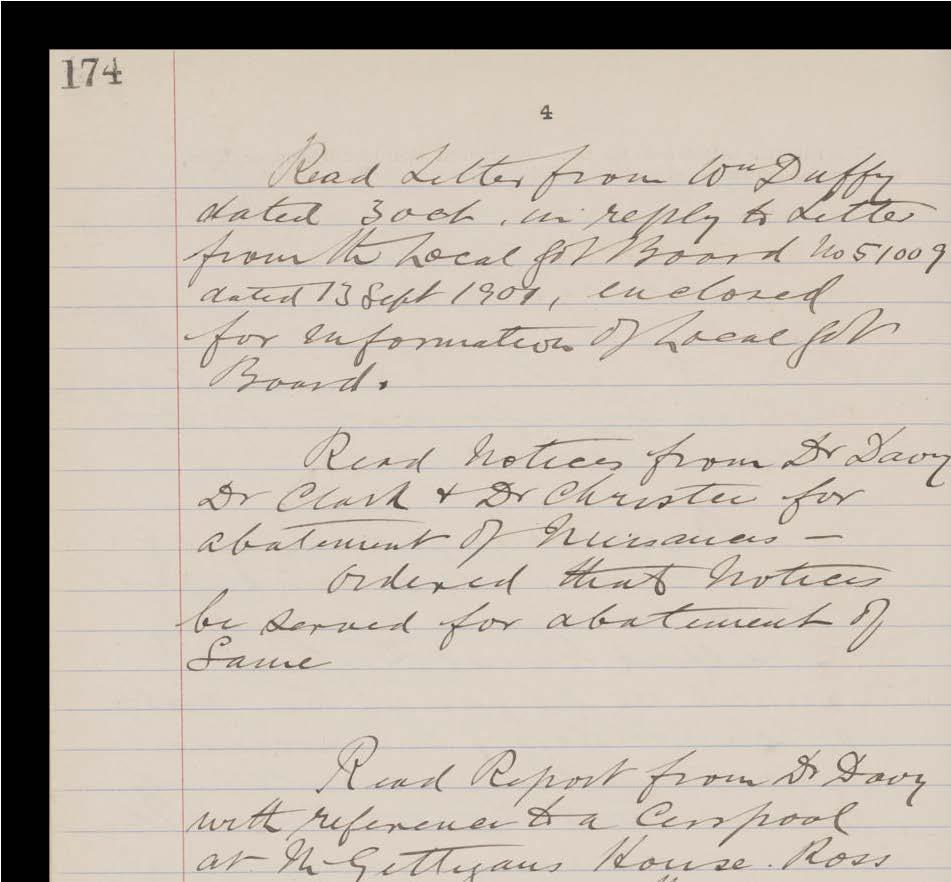 174
4
Read Letter from Wm Duffy
dated 3 Oct. in reply to Letter
from the Local Govt Board No 51009
dated 13 Sept 1901, enclosed
for information of Local Govt
Board.
Read Notices from Dr Davy
Dr Clark & Dr Christie for
abatement of Nuisances —
Ordered that Notices
be served for abatement of
Same
Read Report from Dr Davy
with reference to a Cesspool
at McGettigans House. Ross